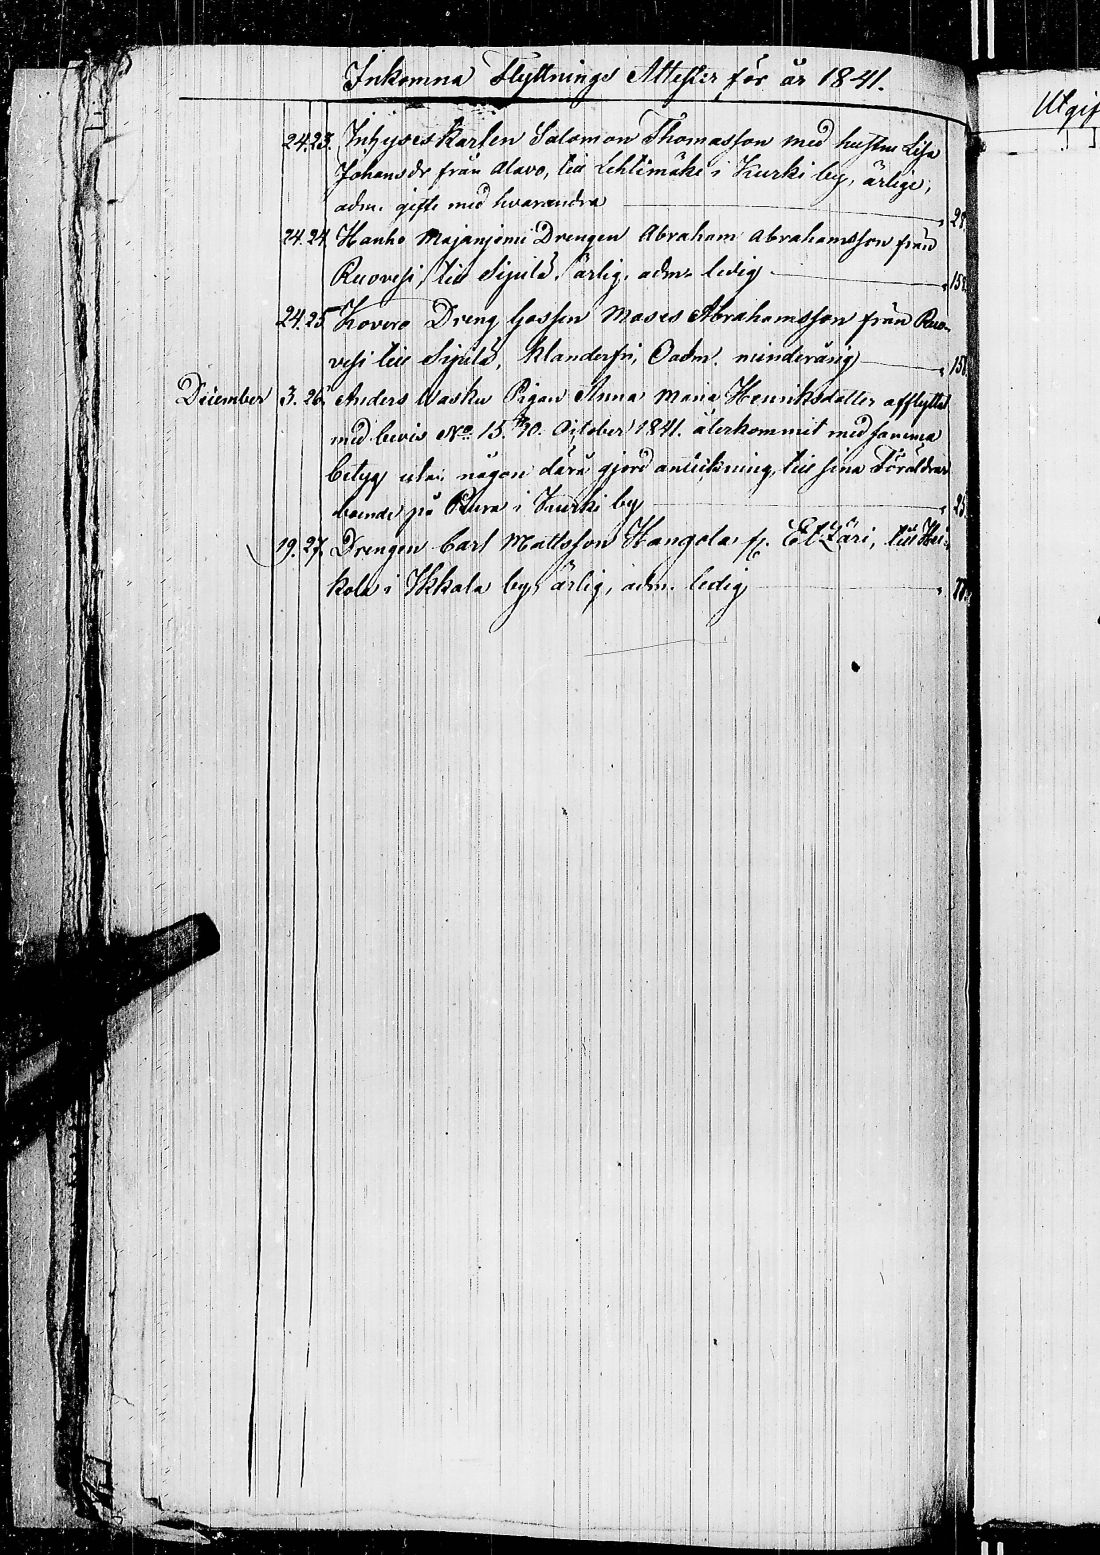 Inkomna Flyttnings Attester för år 1841.
24. 23. Inhyses Karlen Salomon Thomasson med hustru Lisa
Johansdr från Alavo, till Lehtimäki i Kurki by, ärlige,
adm. gifte med hvarandra 28
24. 24. Hanho Majaniemi Drengen Abraham Abrahamsson från
Ruovesi, till Sipilä, ärlig, adm. ledig 158
24. 25 Kovero Dreng Gossen Moses Abrahamsson från Ruo-
vesi till Sipilä, klanderfri, Oadm. minderårig 158
December 3. 26 Anders Wasku Pigan Anna Maria Henriksdotter afflyttat
med bevis No 15. 10. October 1841. återkommit med samma
betyg utan någon därå gjord anteckning, till sina Föräldrar
boende på Rura i Kurki by 25
19. 27. Drengen Carl Mattsson Kangola fr. Etzäri, till Hei-
kola i Ikkala by, ärlig, adm. ledig
Utgif